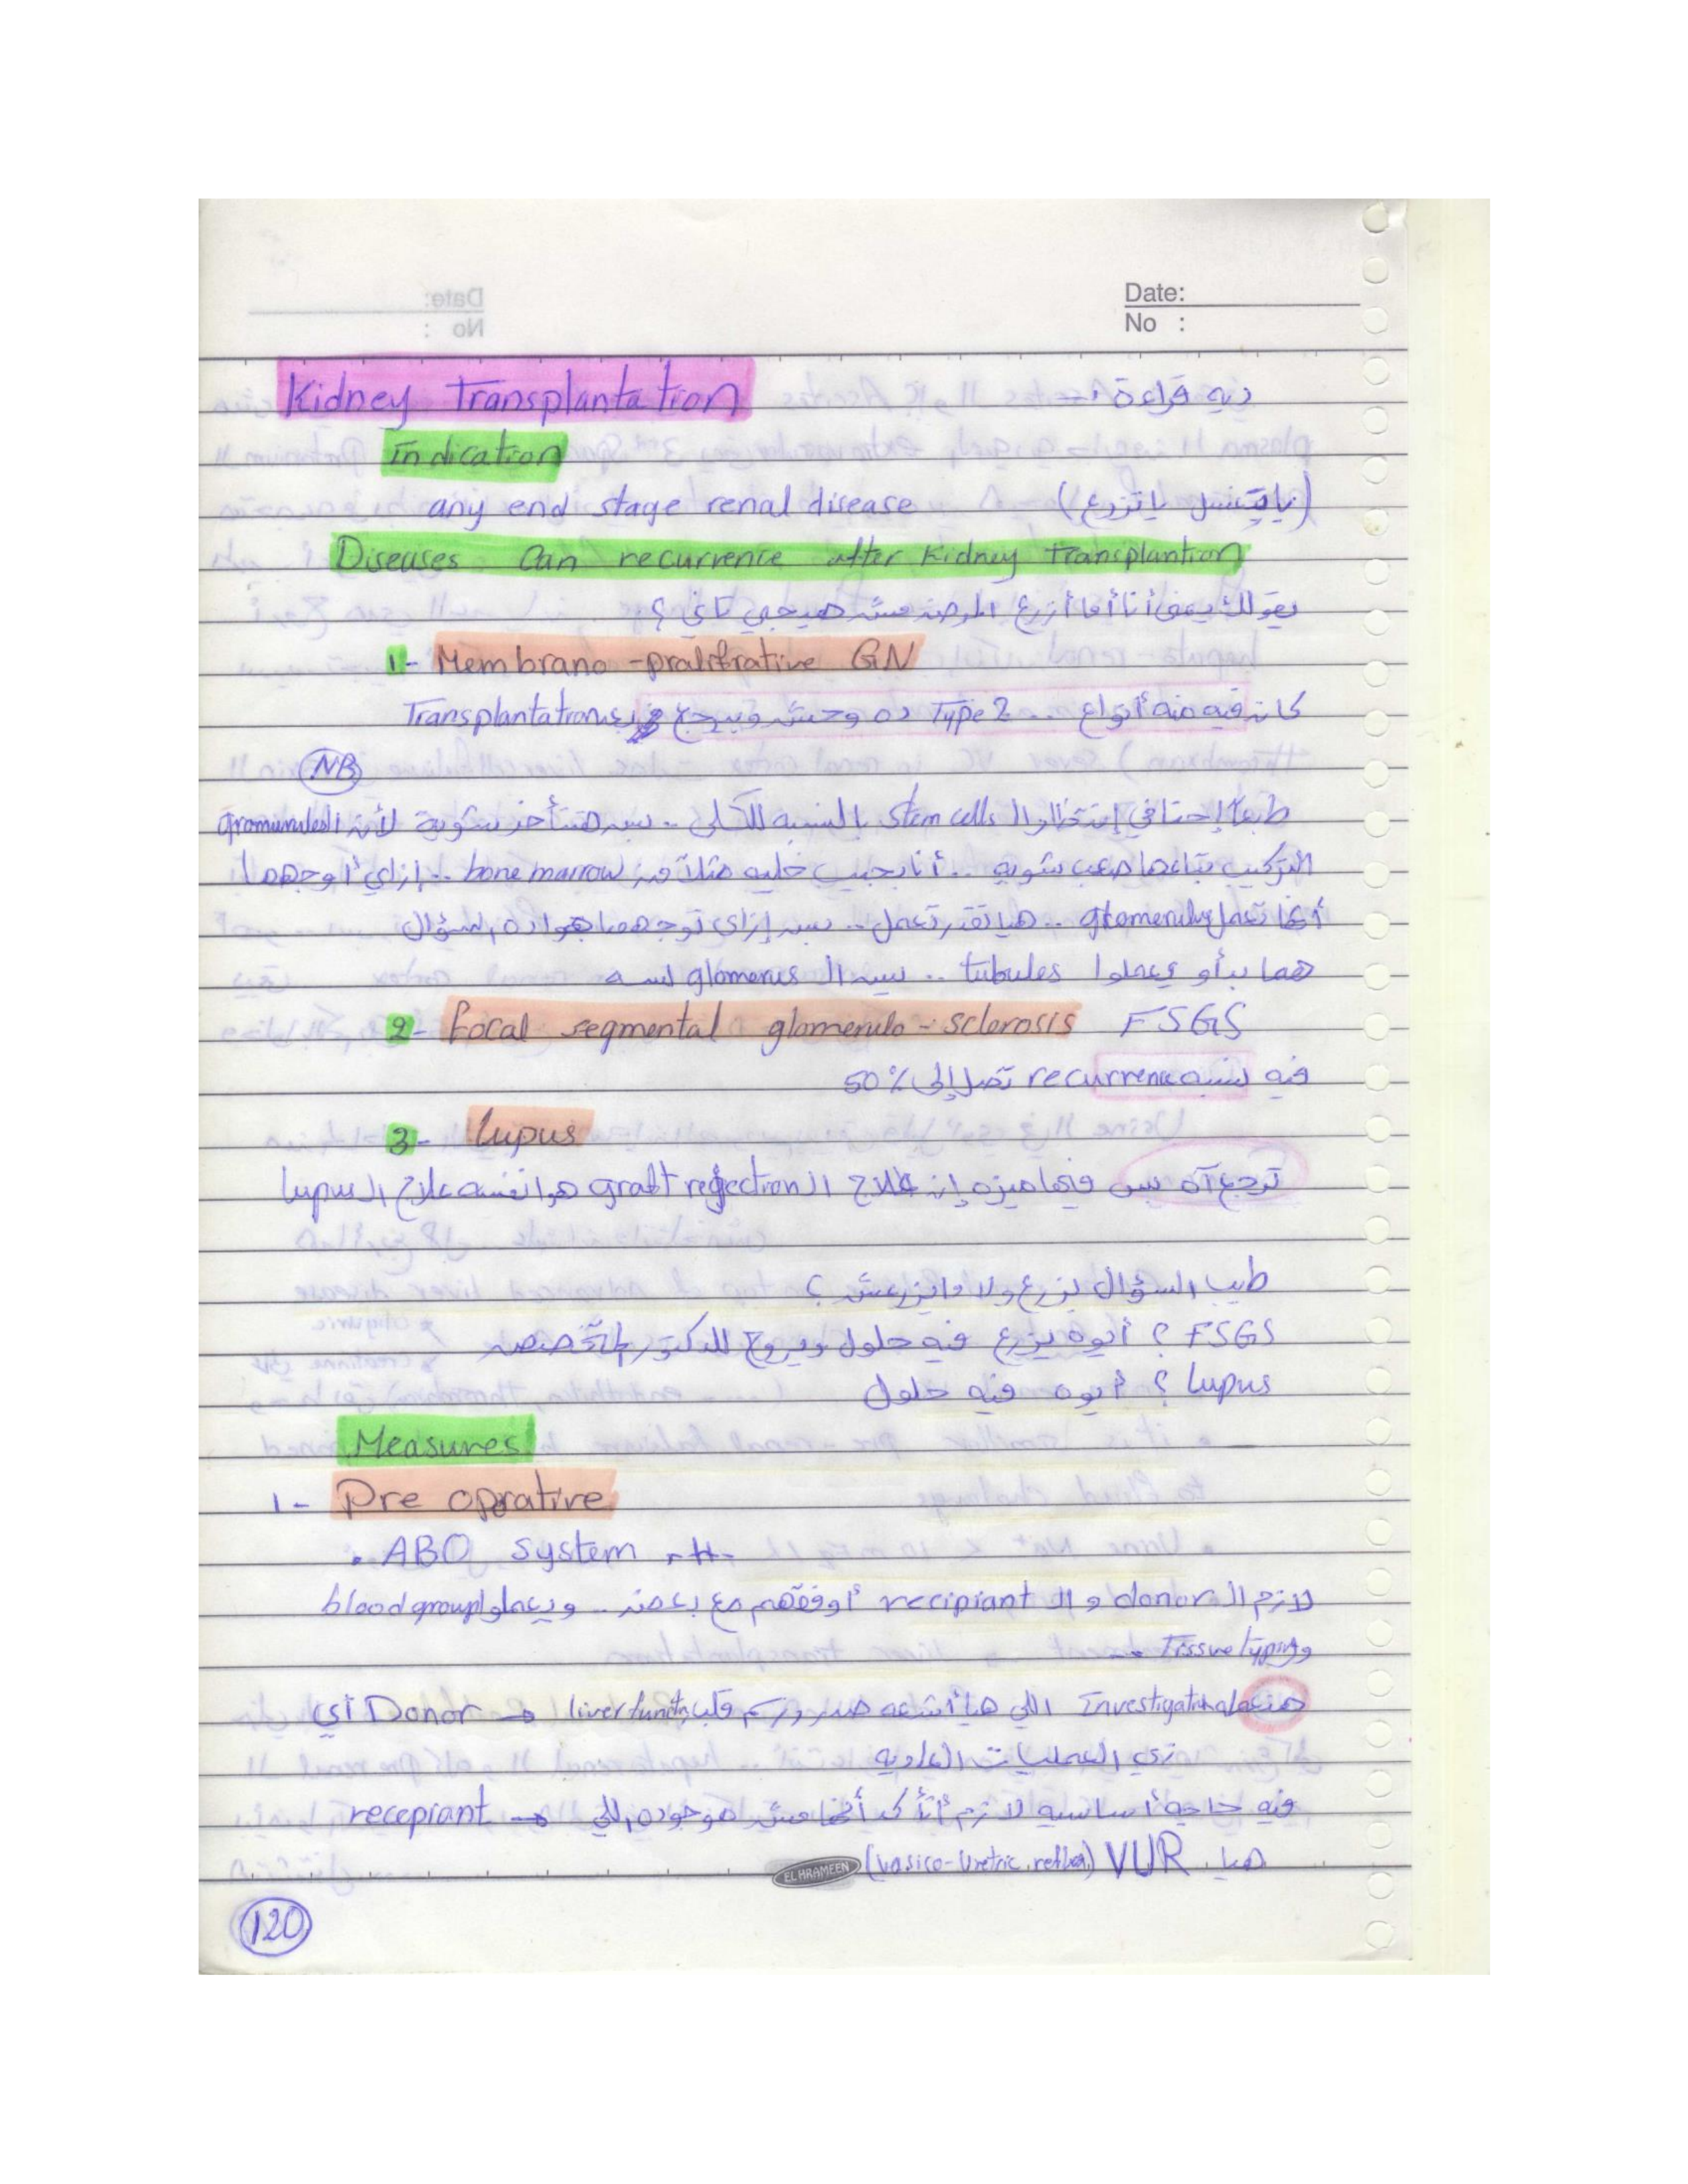 Date:
No :
Kidney Transplantation
ديه قراءة :-
Indication
any end stage renal disease (يايتغسل ياتزرع)
Diseases Can recurrence after Kidney transplantion
يقولك يعني أنا أما أزرع المرض مش هيجي تاني ؟
1- Membrano -prolifrative GN
كان فيه منه أنواع ... Type 2 ده وحش وبيرجع بعد Transplantation
NB
طبعا إحنا في إنتظار ال stem cells بالنسبه للكلى .. بس هتتأخر شوية لأن ال
التركيب بتاعها صعب شويه .. أنا بجيب خليه مثلا من bone marrow .. إزاي أوجهها
أنها تعمل glomeruly .. هيا تقدر تعمل .. بس إزاي توجهها هوا ده السؤال
هما بدأو يعملوا tubules .. بس ال glomerus لسه
2- focal segmental glomerulo - sclerosis FSGS
فيه نسبه recurrence تصل إلى 50%
3- Lupus
ترجع آه بس فيها ميزه إن علاج ال graft rejection هوا نفسه علاج ال lupus
طيب السؤال نزرع ولا مانزرعش ؟
FSGS ؟ أيوه يزرع فيه حلول ويروح للدكتور المتخصص
Lupus ؟ أيوه فيه حلول
Measures
1- Pre oprative
. ABO system
لازم ال donor و ال recipiant أوفقهم مع بعض .. ويعملوا blood group
و Tissue typing
هنعمل Investigation اللي هيا أشعه صدر ورسم قلب liver function → Donor أي
زي العمليات العاديه
فيه حاجه أساسيه لازم أتأكد أنها مش موجوده اللي → recepiant
هيا VUR (vasico-Uretric reflux)
EL HRAMEEN
120